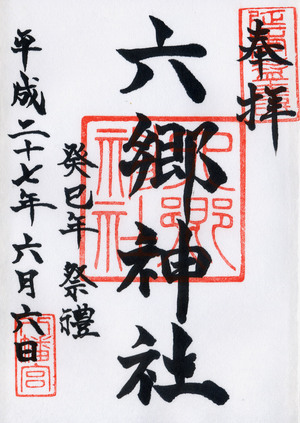 奉拝
六郷神社
癸巳年 祭禮
平成二十七年六月六日
六郷神社
八幡宮